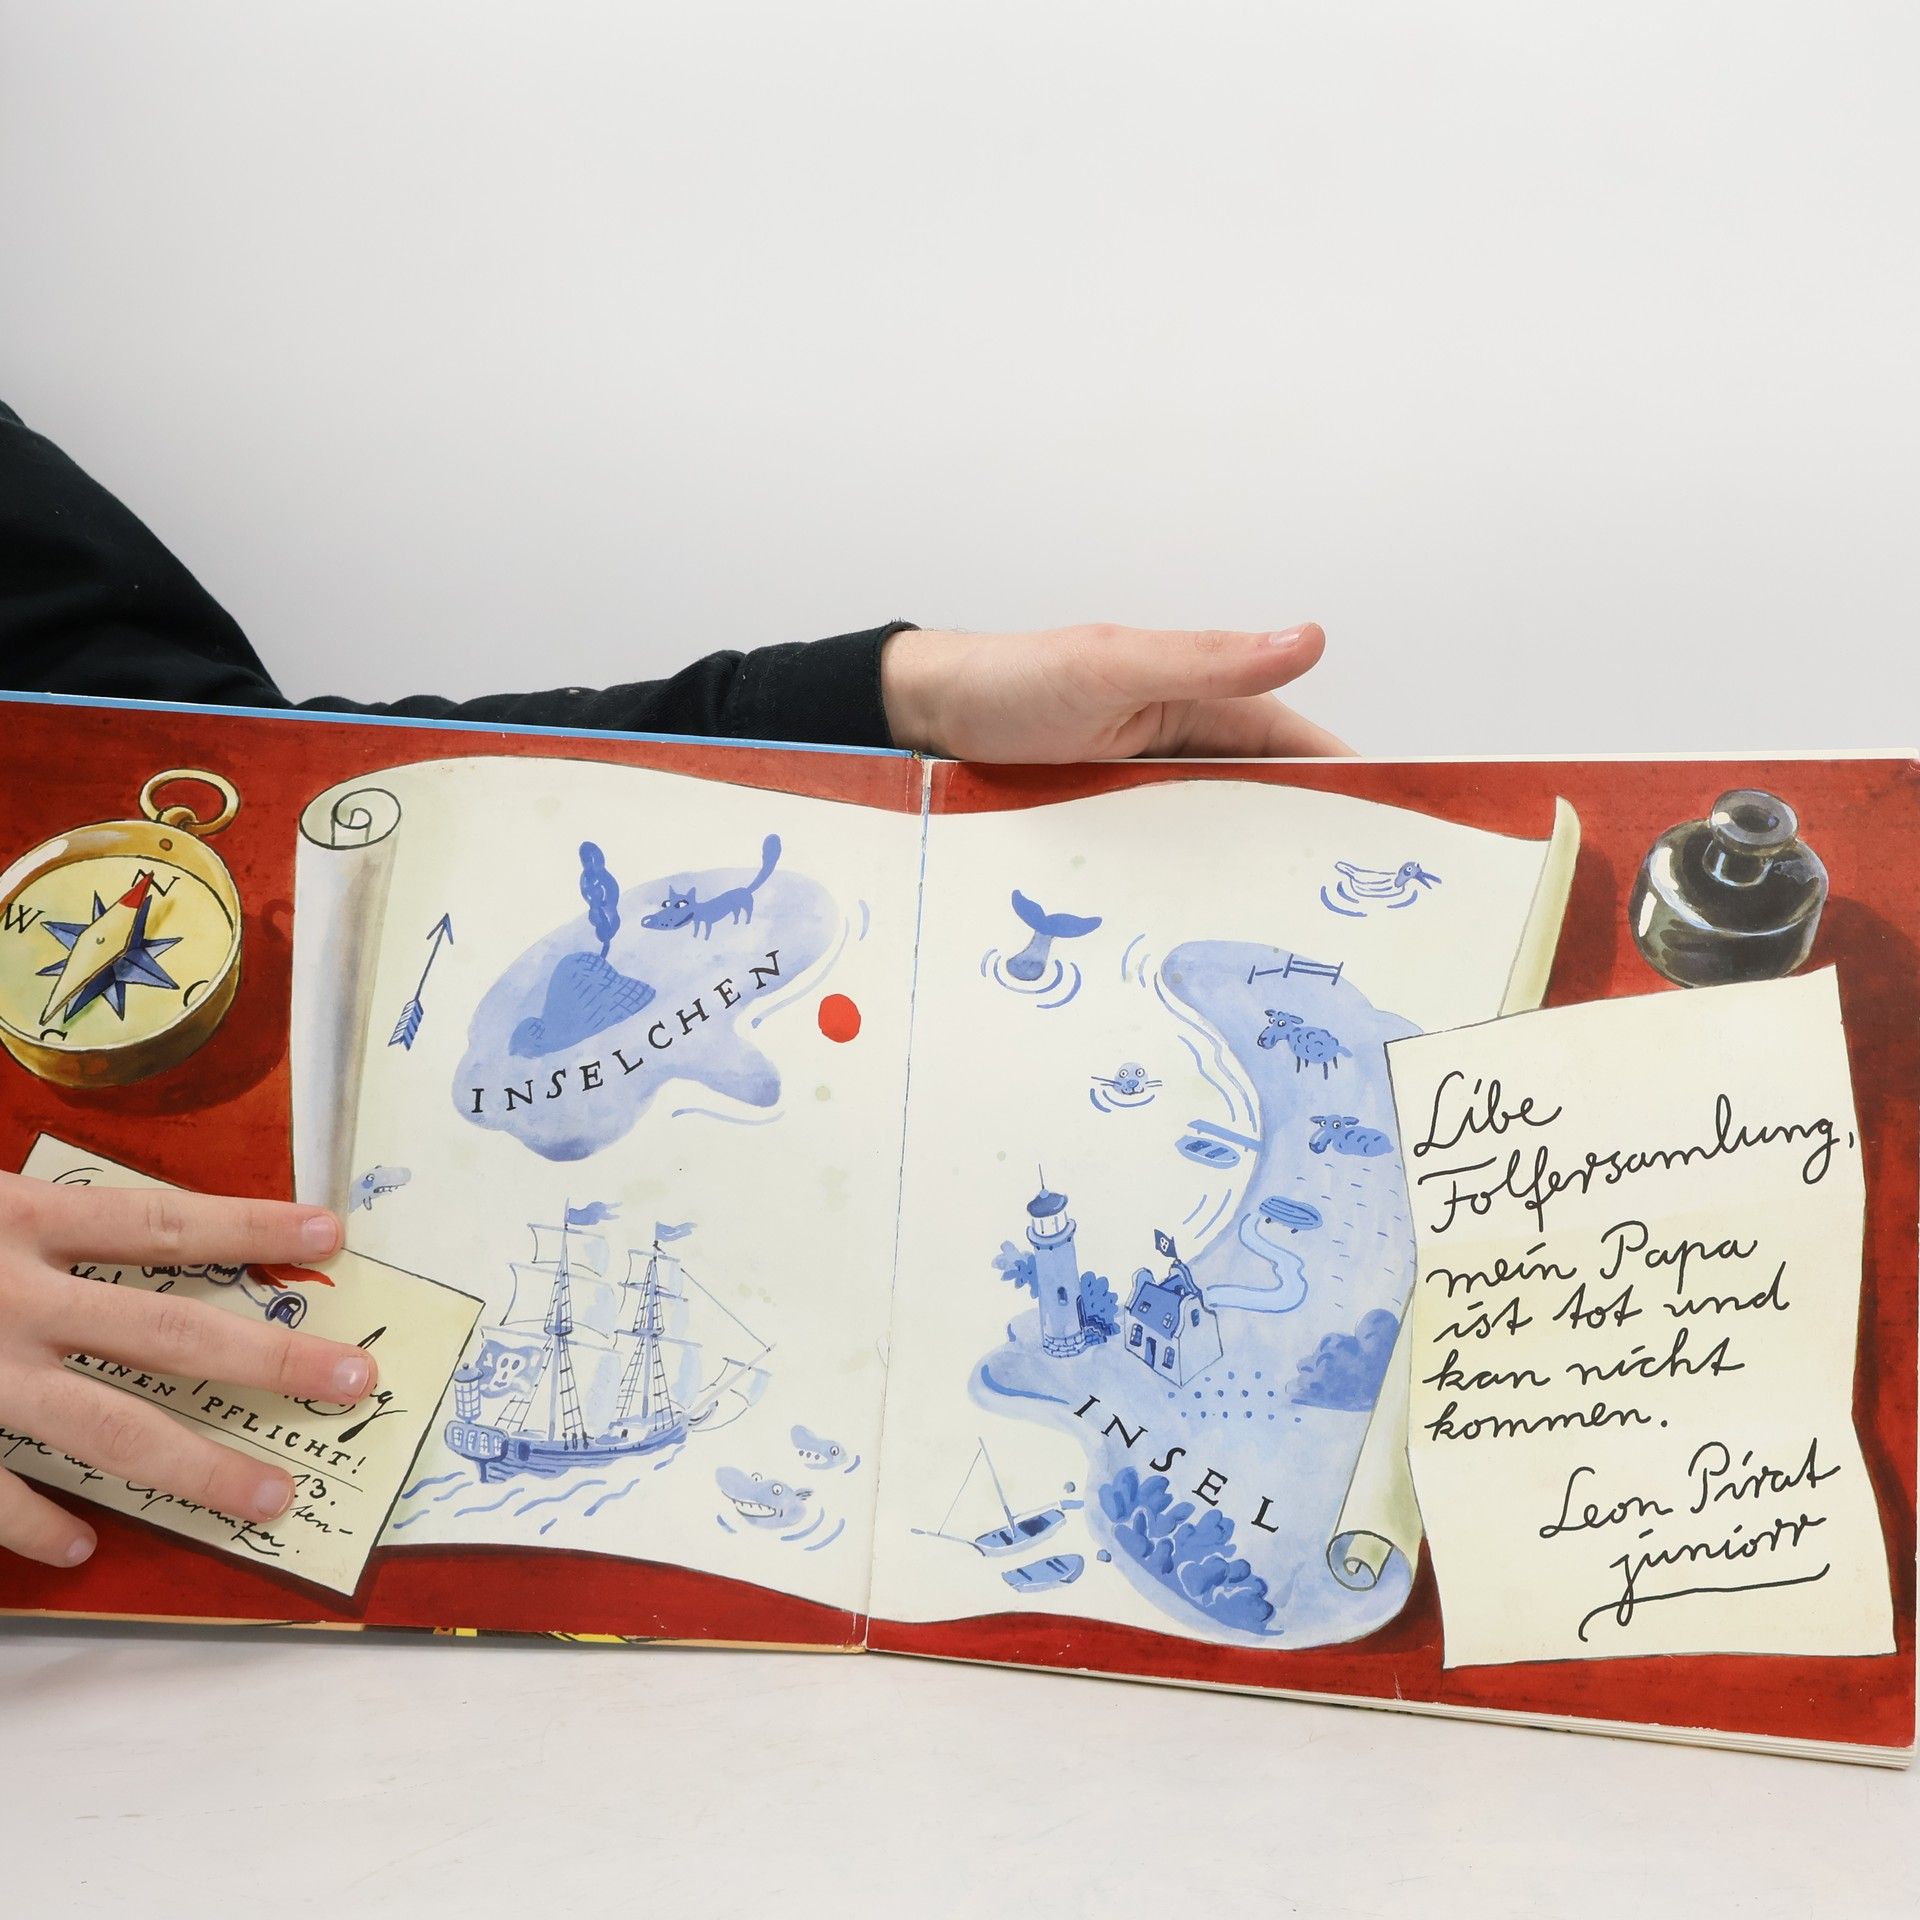 N
W
INSELCHEN
PFLICHT!
13.
Esperanza.
INSEL
Libe
Folfersamlung,
mein Papa
ist tot und
kan nicht
kommen.
Leon Pirat
juniorr